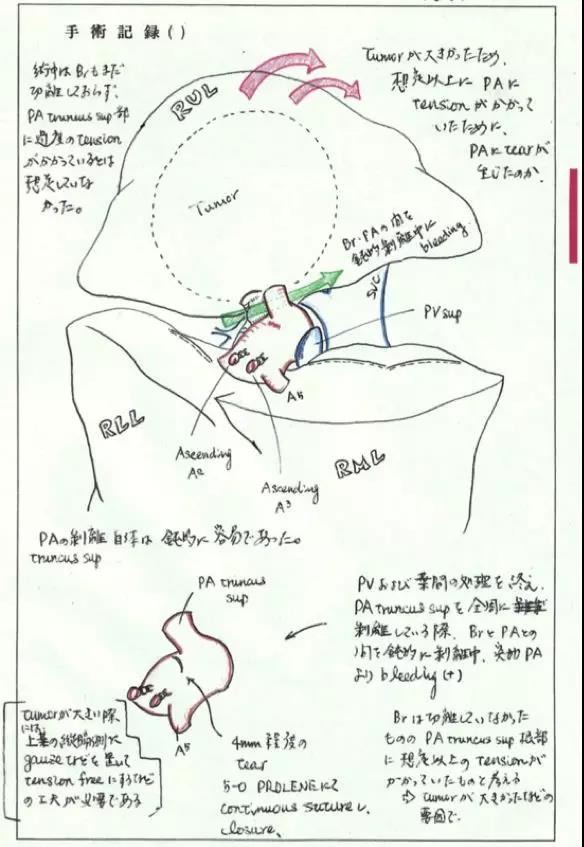 手術記録()
術中はBrもまだ
切離しておらず、
PA truncus sup部
に過度のtension
がかかっているとは
想定していな
かった。
Tumorが大きかったため、
想定以上にPAに
tensionがかかって
いたために、
PAにtearが
生じたのか.
RUL
Tumor
Br・PAの間を
鈍的剥離中に
bleeding.
SVC
PV sup
A5
RLL
RML
Ascending
A2
Ascending
A3
PAの剥離自体は鈍的に容易であった。
truncus sup
PA truncus
sup
A5
4mm程度の
tear
5-0 PROLENEにて
continuous suture し
closure.
PVおよび葉間の処理を終え、
PA truncus supを全周に
剥離している際、BrとPAとの
間を鈍的に剥離中、PA
よりbleeding(+)
Brは切離していなかった
ものの PA truncus sup 根部
に想定以上のtensionが
かかっていたものと考える
⇨ tumorが大きかったなどの
要因で.
tumorが大きい際
には、
上葉の縦隔側に
gauzeなどを置いて
tension freeにするなど
の工夫が必要である